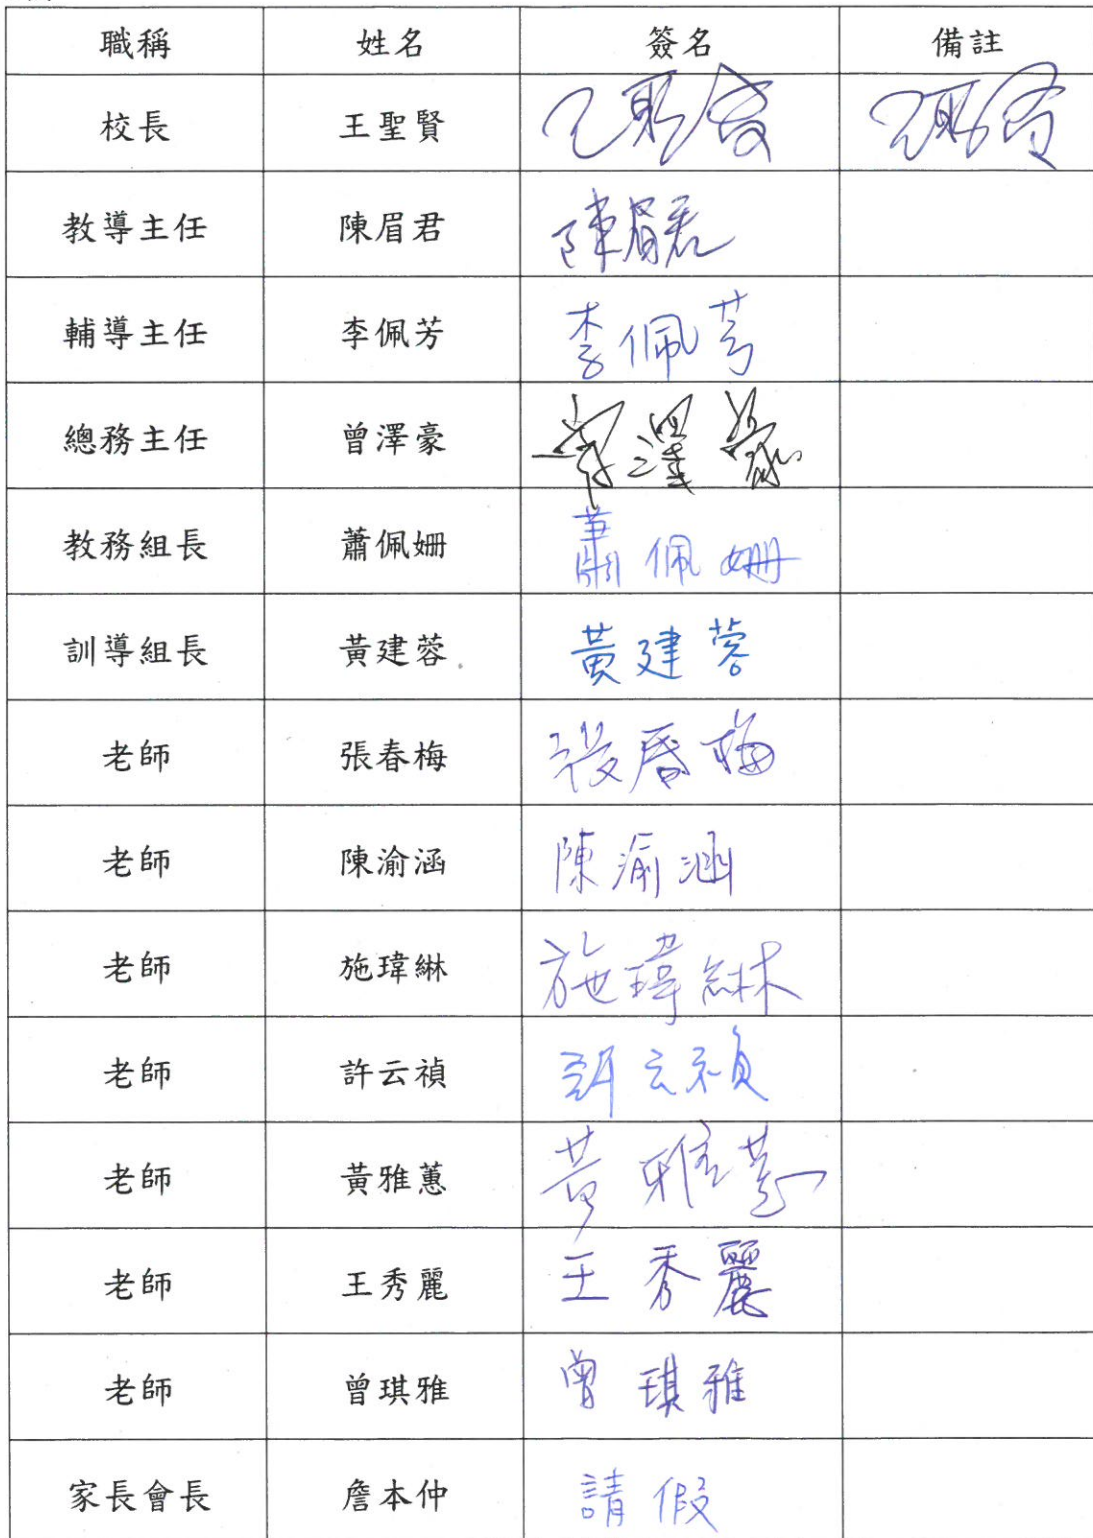 職稱 姓名 簽名 備註
校長 王聖賢 王聖賢 王聖賢
教導主任 陳眉君 陳眉君
輔導主任 李佩芳 李佩芳
總務主任 曾澤豪 曾澤豪
教務組長 蕭佩姍 蕭佩姍
訓導組長 黃建蓉 黃建蓉
老師 張春梅 張春梅
老師 陳渝涵 陳渝涵
老師 施瑋綝 施瑋綝
老師 許云禎 許云禎
老師 黃雅蕙 黃雅蕙
老師 王秀麗 王秀麗
老師 曾琪雅 曾琪雅
家長會長 詹本仲 請假